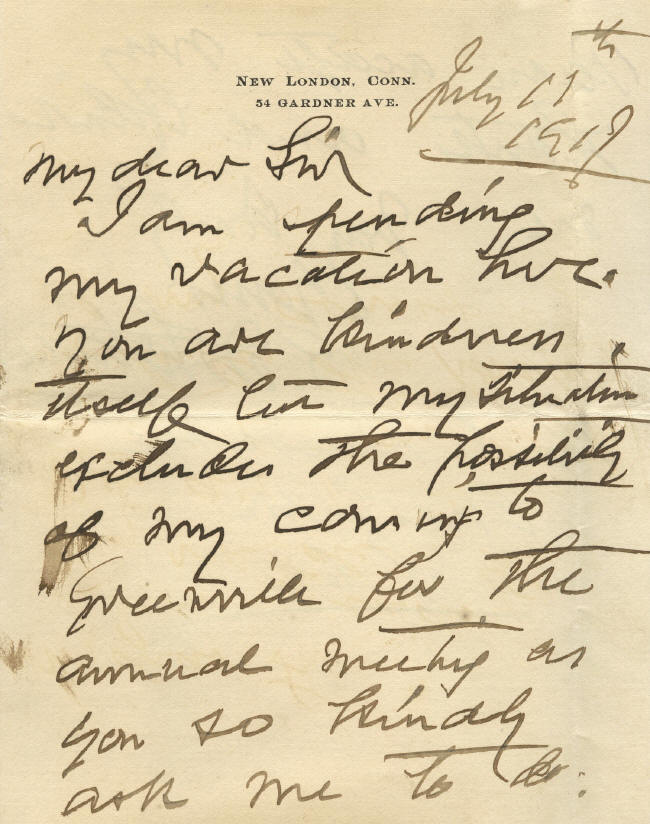 New London, Conn.
54 Gardner Ave.
July 17th
1917
My dear Sir
I am spending
my vacation here.
You are kindness
itself but my situation
excludes the possibility
of my coming to
Greenville for the
annual meeting as
you so kindly
ask me to do.